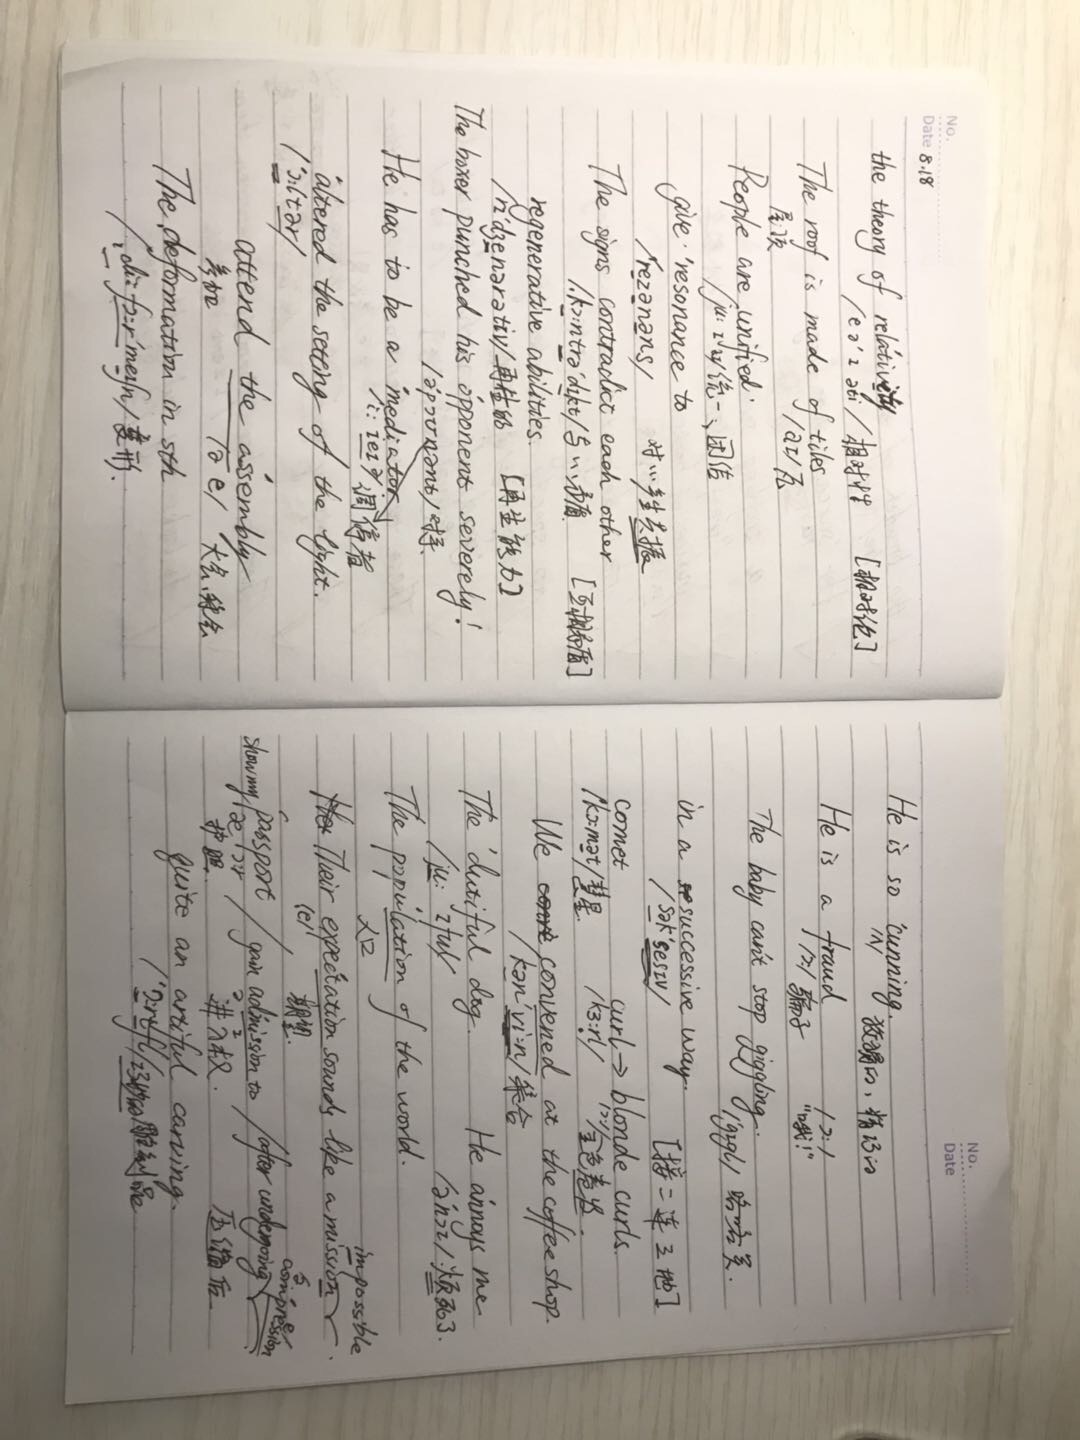 No.
Date 8.18
the theory of relativity
/ə'ɪ əti/ 相对性 [相对论]
The roof is made of tiles
屋顶 /aɪ/ 瓦
People are unified.
/ju: ɪ aɪ/ 统一、团结
give 'resonance to
/rezənəns/ 对…产生共振
The signs contradict each other
/ˌkɔ:ntrə'dɪkt/ 与…矛盾 [互相矛盾]
regenerative abilities.
/rɪ'dʒenərətiv/ 再生的 [再生能力]
The boxer punched his opponent severely!
/ə'pəʊnənt/ 对手
He has to be a mediator
/i: ieɪ ər/ 调停者
altered the setting of the light.
/'ɔ:ltər/
attend the assembly
参加 /ə e/ 大会,集会
The deformation in sth
/ˌdi:fɔ:r'meɪʃn/ 变形.
No.
Date
He is so 'cunning.
/ʌ/ 狡猾的,精巧的
He is a fraud
/ɔ:/ 骗子 /ɔ:/ "哦!"
The baby can't stop giggling.
/gɪgl/ 咯咯笑.
in a successive way.
/sək'sesɪv/ [接二连三地]
comet curl → blonde curls.
/kɔmət/ 彗星 /kɜ:rl/ 金色卷发
We convened at the coffee shop.
/kən'vi:n/ 集合
The 'dutiful dog. He annoys me
/ju: ɪful/ /ənɔɪ/ 惹恼了.
The population of the world.
人口
impossible
Their expectation sounds like a mission.
(e) 期望.
show my passport / gain admission to / after undergoing compression
/æ ɔ:r/ 护照. 进入权. 压缩后
quite an artful carving.
/'ɑ:rtfl/ 巧妙的雕刻品